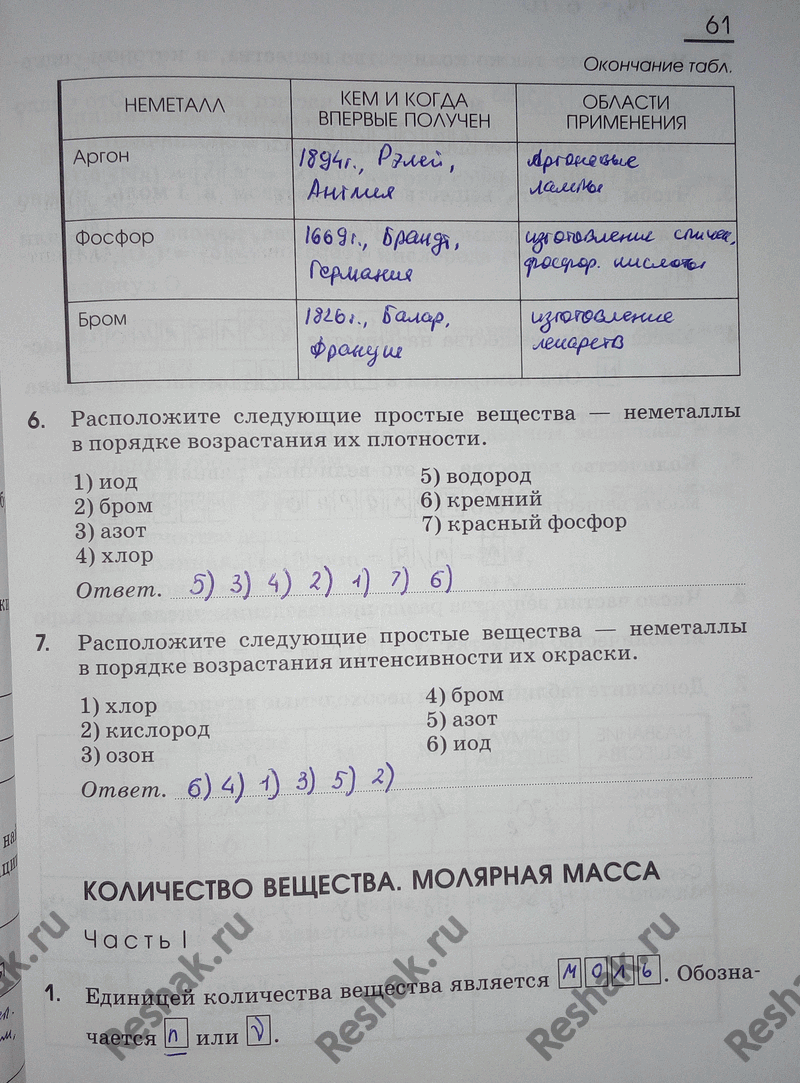 61
Окончание табл.
НЕМЕТАЛЛ
КЕМ И КОГДА
ВПЕРВЫЕ ПОЛУЧЕН
ОБЛАСТИ
ПРИМЕНЕНИЯ
Аргон
1894г., Рэлей,
Англия
Аргоновые
лампы
Фосфор
1669г., Бранд,
Германия
изготовление спичек,
фосфор. кислоты
Бром
1826г., Балар,
Франция
изготовление
лекарств
6. Расположите следующие простые вещества — неметаллы
в порядке возрастания их плотности.
1) иод
2) бром
3) азот
4) хлор
5) водород
6) кремний
7) красный фосфор
Ответ. 5) 3) 4) 2) 1) 7) 6)
7. Расположите следующие простые вещества — неметаллы
в порядке возрастания интенсивности их окраски.
1) хлор
2) кислород
3) озон
4) бром
5) азот
6) иод
Ответ. 6) 4) 1) 3) 5) 2)
КОЛИЧЕСТВО ВЕЩЕСТВА. МОЛЯРНАЯ МАССА
Часть I
1. Единицей количества вещества является моль. Обозна-
чается n или ν.
Reshak.ru
Reshak.ru
Reshak.ru
Reshak.ru